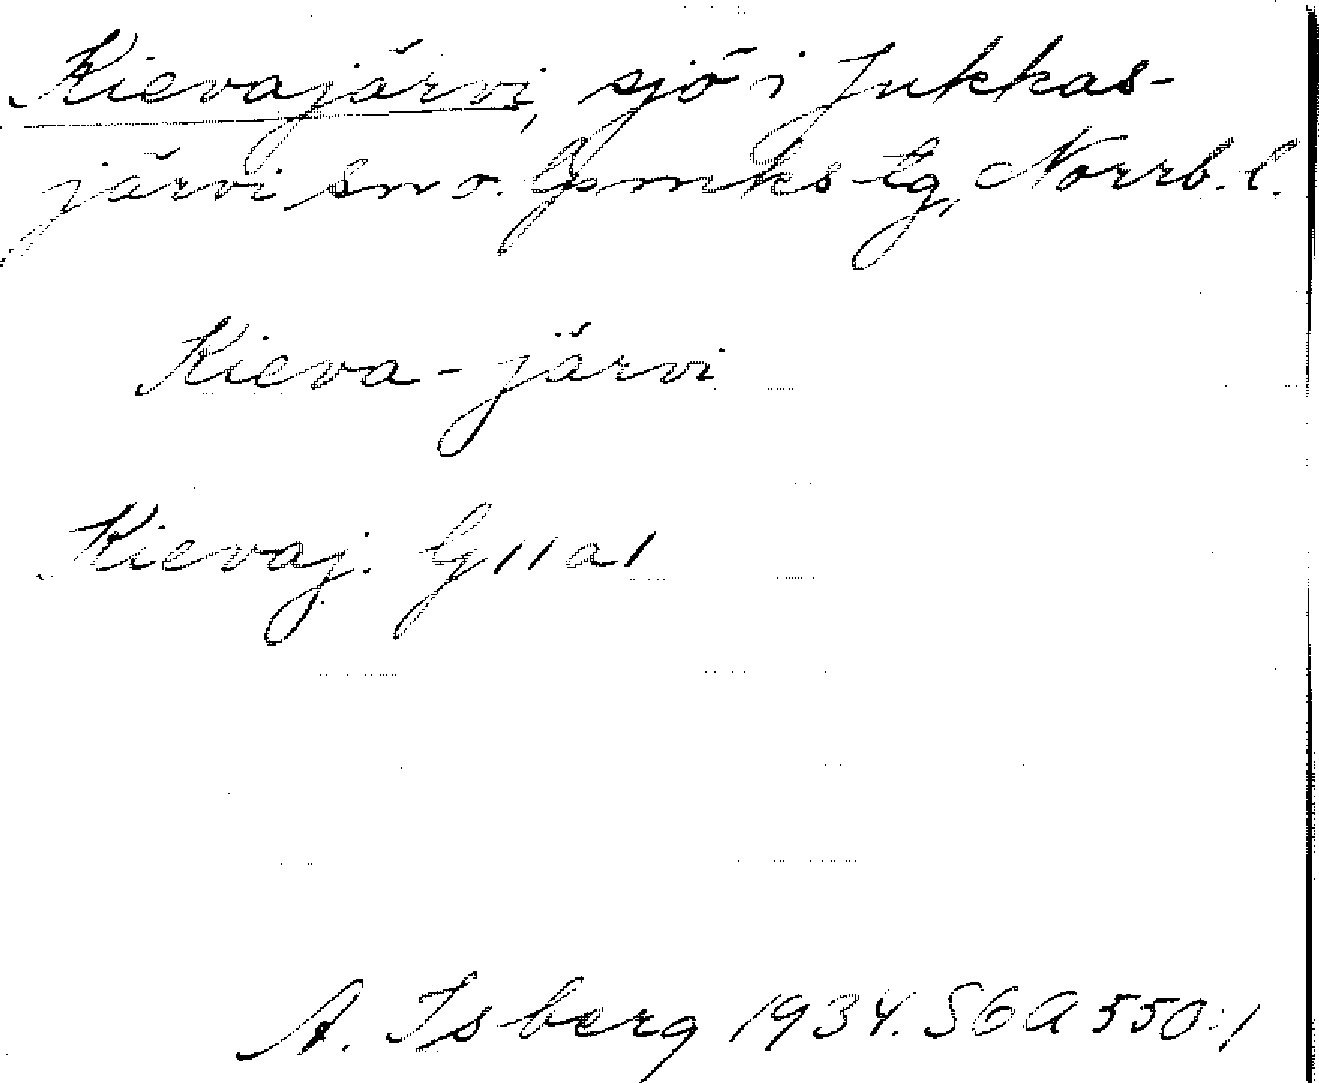 Kievajärvi, sjö i Jukkas-
järvi sn o. Gpmks tg, Norrb. l.
Kieva-järvi
Kievaj. G11a1
A. Isberg 1934. SGA 550:1